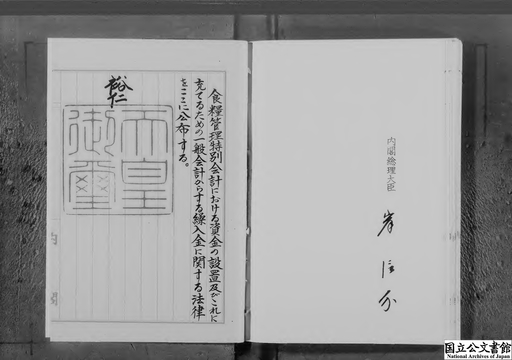 食糧管理特別会計における資金の設置及びこれに
充てるための一般会計からする繰入金に関する法律
をここに公布する。
裕仁
天皇
御璽
内閣総理大臣
岸信介
国立公文書館
National Archives of Japan